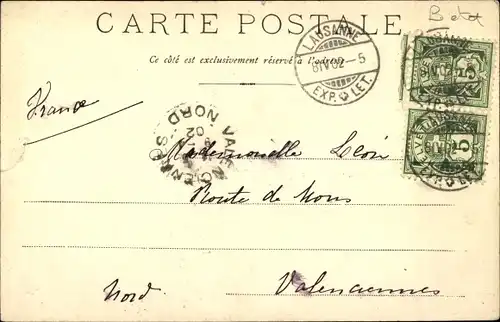 B état
CARTE POSTALE
Ce côté est exclusivement réservé à l'adresse
LAUSANNE
8IV02-5
EXP. LET.
France
VALENCIENNES
NORD
02
Mademoiselle Léon
Route de Mons
Valenciennes
Nord
HELVETIA
5
5